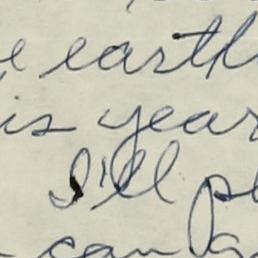 e earth
is year
I'll pl
can